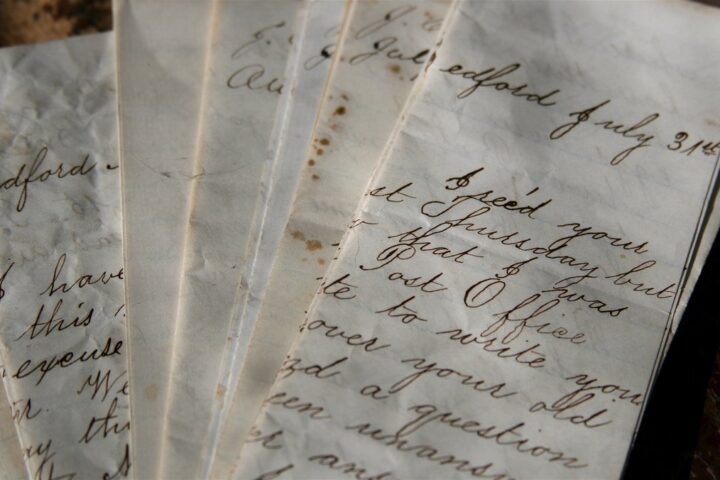 dford
I have
this
excuse
r. We
y thi
J.
Au
J.
July
edford July 31st
I rec'd your
st Thursday but
that I was
Post Office
te to write you
over your old
nd a question
een unansw